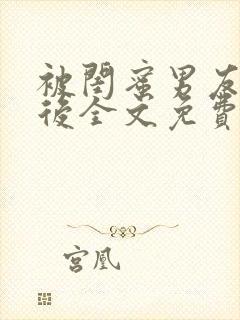 被閨蜜男友
後全文免費
宮凰